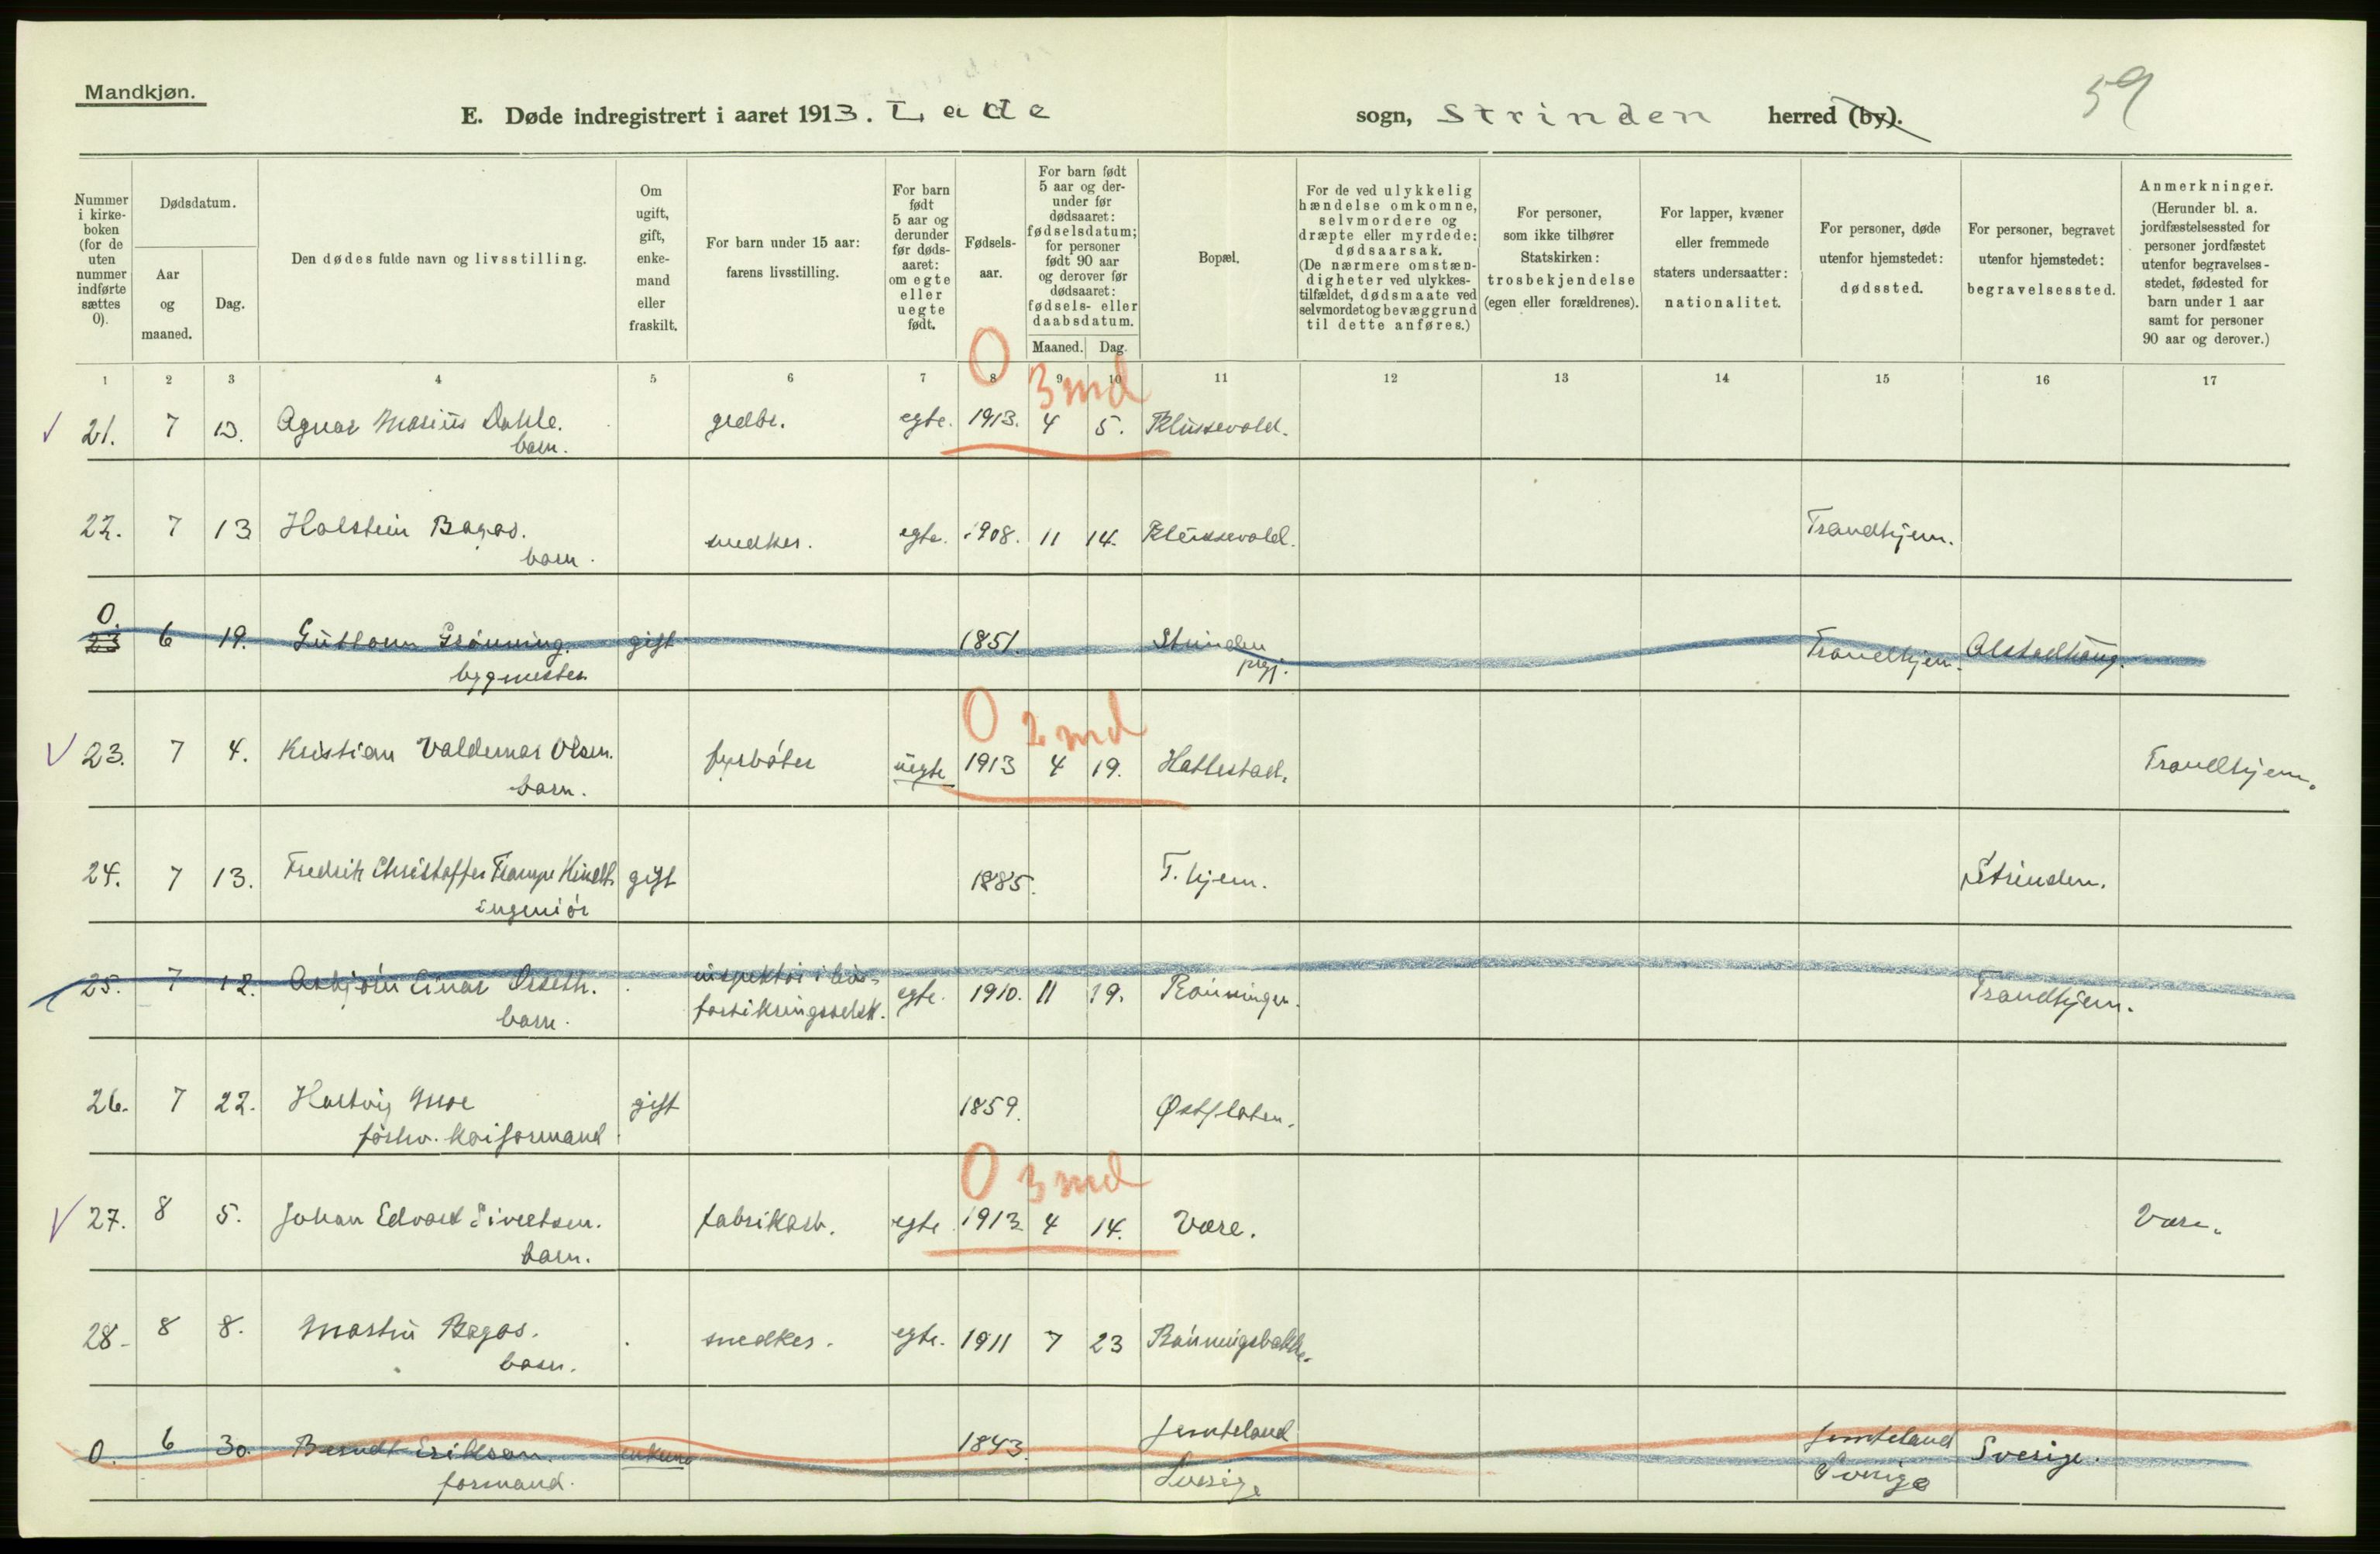 Mandkjøn.
E. Døde indregistrert i aaret 1913. Lade sogn, Strinden herred (by).
59
Nummer i kirkeboken (for de uten nummer indførte sættes 0).
Dødsdatum.
Aar og maaned.
Dag.
Den dødes fulde navn og livsstilling.
Om ugift, gift, enkemand eller fraskilt.
For barn under 15 aar: farens livsstilling.
For barn født 5 aar og derunder før dødsaaret: om egte eller uegte født.
Fødselsaar.
For barn født 5 aar og derunder før dødsaaret: fødselsdatum; for personer født 90 aar og derover før dødsaaret: fødsels- eller daabsdatum.
Maaned. Dag.
Bopæl.
For de ved ulykkelig hændelse omkomne, selvmordere og dræpte eller myrdede: dødsaarsak. (De nærmere omstændigheter ved ulykkestilfældet, dødsmaate ved selvmordet og bevæggrund til dette anføres.)
For personer, som ikke tilhører Statskirken: trosbekjendelse (egen eller forældrenes).
For lapper, kvæner eller fremmede staters undersaatter: nationalitet.
For personer, døde utenfor hjemstedet: dødssted.
For personer, begravet utenfor hjemstedet: begravelsessted.
Anmerkninger. (Herunder bl. a. jordfæstelsessted for personer jordfæstet utenfor begravelsesstedet, fødested for barn under 1 aar samt for personer 90 aar og derover.)
1 2 3 4 5 6 7 8 9 10 11 12 13 14 15 16 17
0 3 md
21. 7 13. Agnar Marius Dahle. egte. 1913. 4 5. Klussevold.
barn.
22. 7 13 Halstein Bagas. snedker. egte. 1908. 11 14. Klussevold. Trondhjem.
barn.
0.
23 6 19. Grönning. gift 1851. Strinden prgj. Trondhjem. Alstadhaug.
bygmester
0 2 md
23. 7 4. Kristian Valdemar Olsen. fyrbøter uegte 1913 4 19. Hallestad. Trondhjem.
barn.
24. 7 13. Fredrik Christoffer Trampe gift 1885. T. hjem. Strinden.
ingeniör
25. 7 12. Asbjörn Einar Orseth. inspektör i livs-
forsikringsselsk. egte. 1910. 11 19. Rönningen. Trondhjem.
barn.
26. 7 22. Hartvig Moe gift 1859. Østflaten.
forhv. kaiformand
0 3 md
27. 8 5. Johan Edvard Sivertsen. fabrikarb. egte 1913 4 14. Være. Være.
barn.
28. 8 8. Martin Bagas. snedker. egte. 1911 7 23 Rönningsbakke.
barn.
0. 6 30. Berndt Erikson. enkem. 1843. Jemteland Jemteland Sverige.
formand. Sverige Sverige